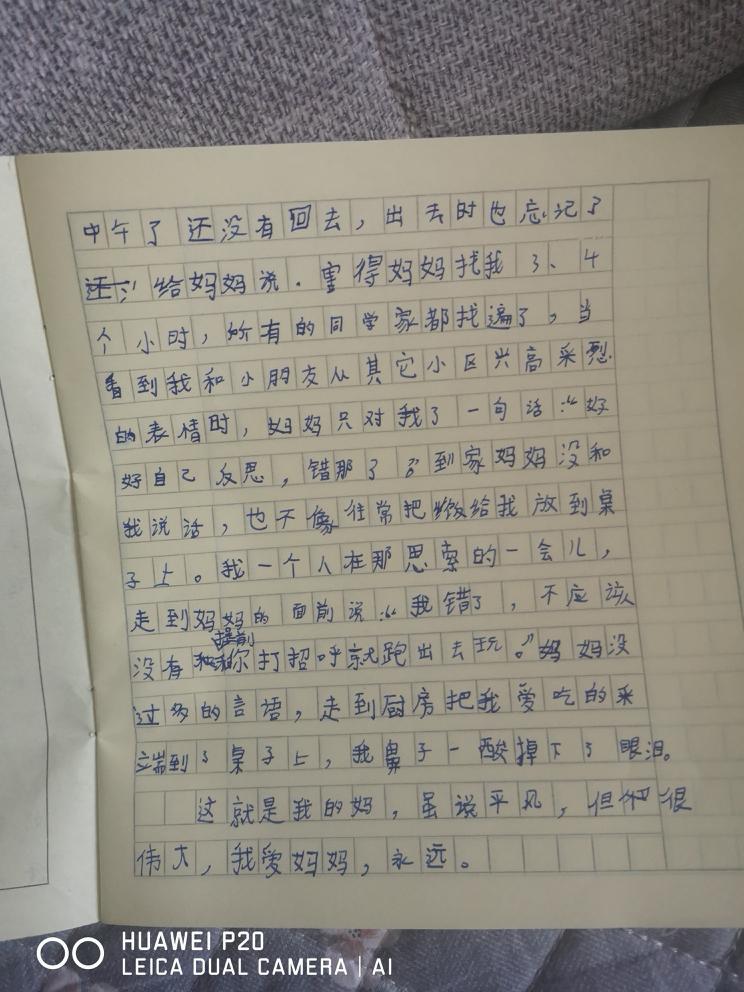 中午了还没有回去，出去时也忘记了
给妈妈说．害得妈妈找我3、4
个小时，所有的同学家都找遍了，当
看到我和小朋友从其它小区兴高采烈
的表情时，妈妈只对我了一句话：“好
好自己反思，错那了？到家妈妈没和
我说话，也不像往常把饭给我放到桌
子上。我一个人在那思索的一会儿，
走到妈妈的面前说：“我错了，不应该
提前
没有和你打招呼就跑出去玩。”妈妈没
过多的言语，走到厨房把我爱吃的采
端到了桌子上，我鼻子一酸掉下了眼泪。
这就是我的妈，虽说平凡，但很
伟大，我爱妈妈，永远。
HUAWEI P20
LEICA DUAL CAMERA | AI